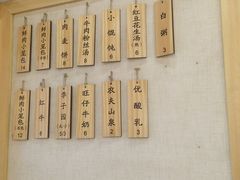 鲜肉小笼包
14
鲜肉小笼包
7
肉麦饼
6
牛肉粉丝汤
8
小馄饨
6
红豆花生汤
6
白粥
3
鲜肉小笼包
12
红牛
6
李子园
5
旺仔牛奶
6
农夫山泉
2
优酸乳
3